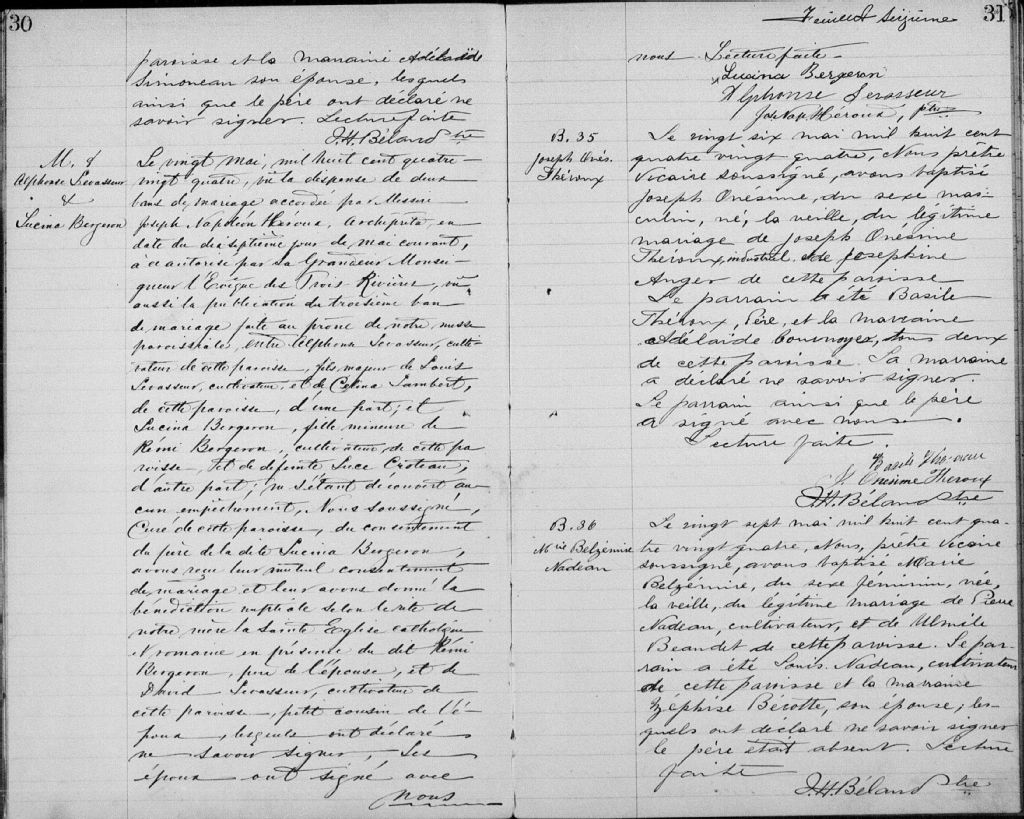 30
paroisse et la marraine Adélaïde
Simoneau son épouse, lesquels
ainsi que le père ont déclaré ne
savoir signer. Lecture faite
J.H. Béland Ptre
M. 8
Alphonse Levasseur
&
Lucina Bergeron
Le vingt mai, mil huit cent quatre-
vingt quatre, vu la dispense de deux
bans de mariage accordée par Messire
Joseph Napoléon Héroux, Archiprêtre, en
date du dix septième jour de mai courant,
à ce autorisé par Sa Grandeur Monsei-
gneur l'Evêque des Trois Rivières, vu
aussi la publication du troisième ban
de mariage faite au prône de notre messe
paroissiale, entre Alphonse Levasseur, culti-
vateur de cette paroisse, fils majeur de Louis
Levasseur, cultivateur, et de Celina Lambert,
de cette paroisse, d'une part; et
Lucina Bergeron, fille mineure de
Rémi Bergeron, cultivateur, de cette pa
roisse, et de defunte Luce Croteau,
d'autre part; ne s'étant découvert au-
cun empêchement, Nous soussigné,
Curé de cette paroisse, du consentement
du père de la dite Lucina Bergeron,
avons reçu leur mutuel consentement
de mariage et leur avons donné la
bénédiction nuptiale selon le rite de
notre mère la Sainte Eglise catholique
romaine en présence du dit Rémi
Bergeron, père de l'épouse, et de
David Levasseur, cultivateur de
cette paroisse, petit cousin de l'é-
poux, lesquels ont déclaré
ne savoir signer, Les
époux ont signé avec
nous
Feuillet Seizième
31
nous. Lecture faite
Lucina Bergeron
Alphonse Levasseur
Jos. Nap. Héroux, ptre
B. 35
Joseph Onés.
Théroux
Le vingt six mai mil huit cent
quatre vingt quatre, Nous prêtre
Vicaire soussigné, avons baptisé
Joseph Onésime, du sexe mas-
culin, né, la veille, du légitime
mariage de Joseph Onésime
Theroux, industriel de Josephine
Anger de cette paroisse
Le parrain a été Basile
Théroux, Père, et la marraine
Adélaïde Cournoyer, tous deux
de cette paroisse. La marraine
a déclaré ne savoir signer.
Le parrain ainsi que le père
a signé avec nous.
Lecture faite.
Basile Theroux
J. Onesime Theroux
J.H. Béland Ptre
B. 36
Mrie Belzémire
Nadeau
Le vingt sept mai mil huit cent qua-
tre vingt quatre, Nous, prêtre Vicaire
soussigné, avons baptisé Marie
Belzémire, du sexe féminin, née,
la veille, du légitime mariage de Pierre
Nadeau, cultivateur, et de Ulmile
Beaudet de cette paroisse. Le par-
rain a été Louis Nadeau, cultivateur
de cette paroisse et la marraine
Zéphise Bérotte, son épouse, les-
quels ont déclaré ne savoir signer
le père était absent. Lecture
faite
J.H. Béland Ptre